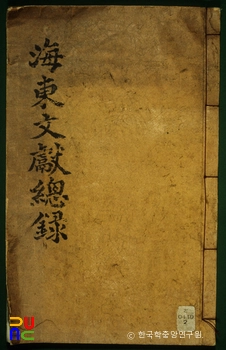 海東文獻總錄
ⓒ 한국학중앙연구원